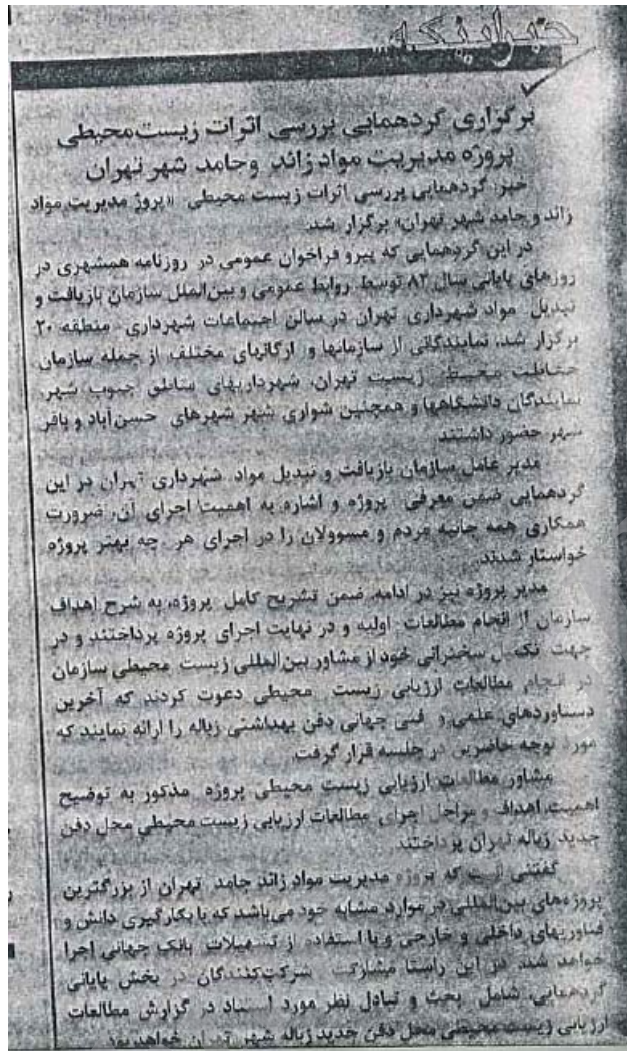 خبر اینکه...
برگزاری گردهمایی بررسی اثرات زیست‌محیطی
پروژه مدیریت مواد زائد وجامد شهر تهران
خبر: گردهمایی بررسی اثرات زیست محیطی «پروژ مدیریت مواد
زائد و جامد شهر تهران» برگزار شد.
در این گردهمایی که پیرو فراخوان عمومی در روزنامه همشهری در
روزهای پایانی سال ۸۲ توسط روابط عمومی و بین‌الملل سازمان بازیافت و
تبدیل مواد شهرداری تهران در سالن اجتماعات شهرداری منطقه ۲۰
برگزار شد، نمایندگانی از سازمانها و ارگانهای مختلف از جمله سازمان
حفاظت محیط زیست تهران، شهرداریهای مناطق جنوب شهر،
نمایندگان دانشگاهها و همچنین شورای شهر شهرهای حسن‌آباد و باقر
شهر حضور داشتند.
مدیر عامل سازمان بازیافت و تبدیل مواد شهرداری تهران در این
گردهمایی ضمن معرفی پروژه و اشاره به اهمیت اجرای آن، ضرورت
همکاری همه جانبه مردم و مسوولان را در اجرای هر چه بهتر پروژه
خواستار شدند.
مدیر پروژه نیز در ادامه، ضمن تشریح کامل پروژه، به شرح اهداف
سازمان از انجام مطالعات اولیه و در نهایت اجرای پروژه پرداختند و در
جهت تکمیل سخنرانی خود از مشاور بین‌المللی زیست محیطی سازمان
در انجام مطالعات ارزیابی زیست محیطی دعوت کردند که آخرین
دستاوردهای علمی و فنی جهانی دفن بهداشتی زباله را ارائه نمایند که
مورد توجه حاضرین در جلسه قرار گرفت.
مشاور مطالعات ارزیابی زیست محیطی پروژه مذکور به توضیح
اهمیت، اهداف و مراحل اجرای مطالعات ارزیابی زیست محیطی محل دفن
جدید زباله تهران پرداختند.
گفتنی است که پروژه مدیریت مواد زائد جامد تهران از بزرگترین
پروژه‌های بین‌المللی در موارد مشابه خود می‌باشد که با بکارگیری دانش و
فناوریهای داخلی و خارجی و با استفاده از تسهیلات بانک جهانی اجرا
خواهد شد. در این راستا مشارکت شرکت‌کنندگان در بخش پایانی
گردهمایی، شامل بحث و تبادل نظر مورد استناد در گزارش مطالعات
ارزیابی زیست محیطی محل دفن جدید زباله شهر تهران خواهد بود.